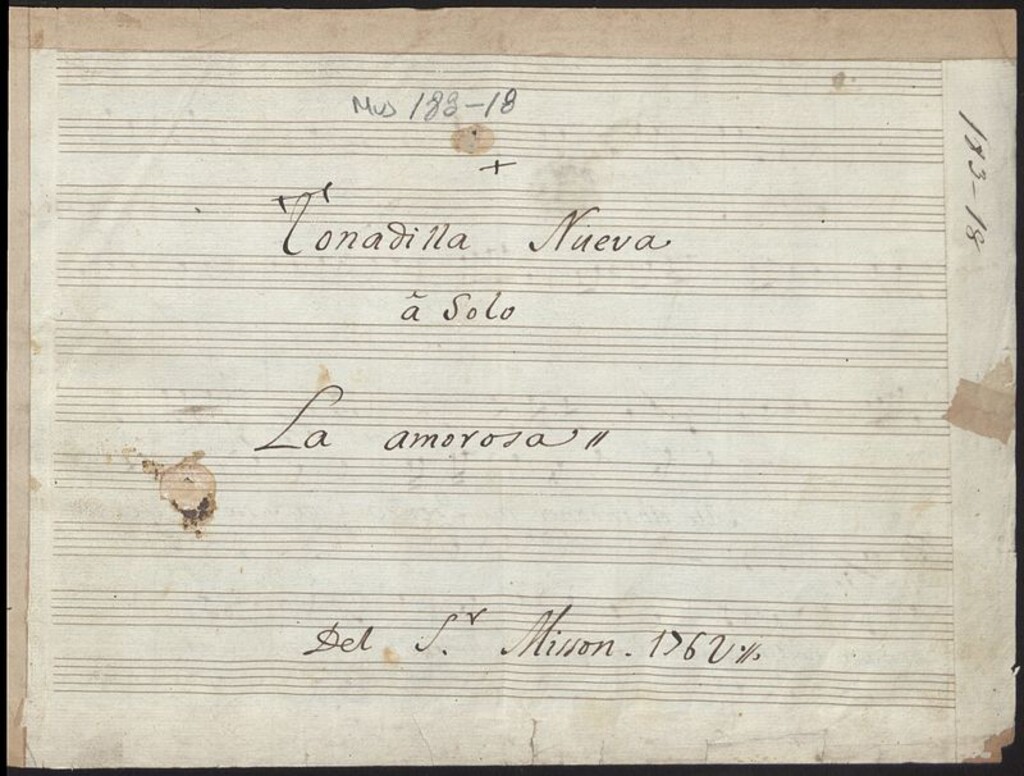 Mus 183-18
+
Tonadilla Nueva
â Solo
La amorosa〃
Del S.r Misson. 1762
173-18